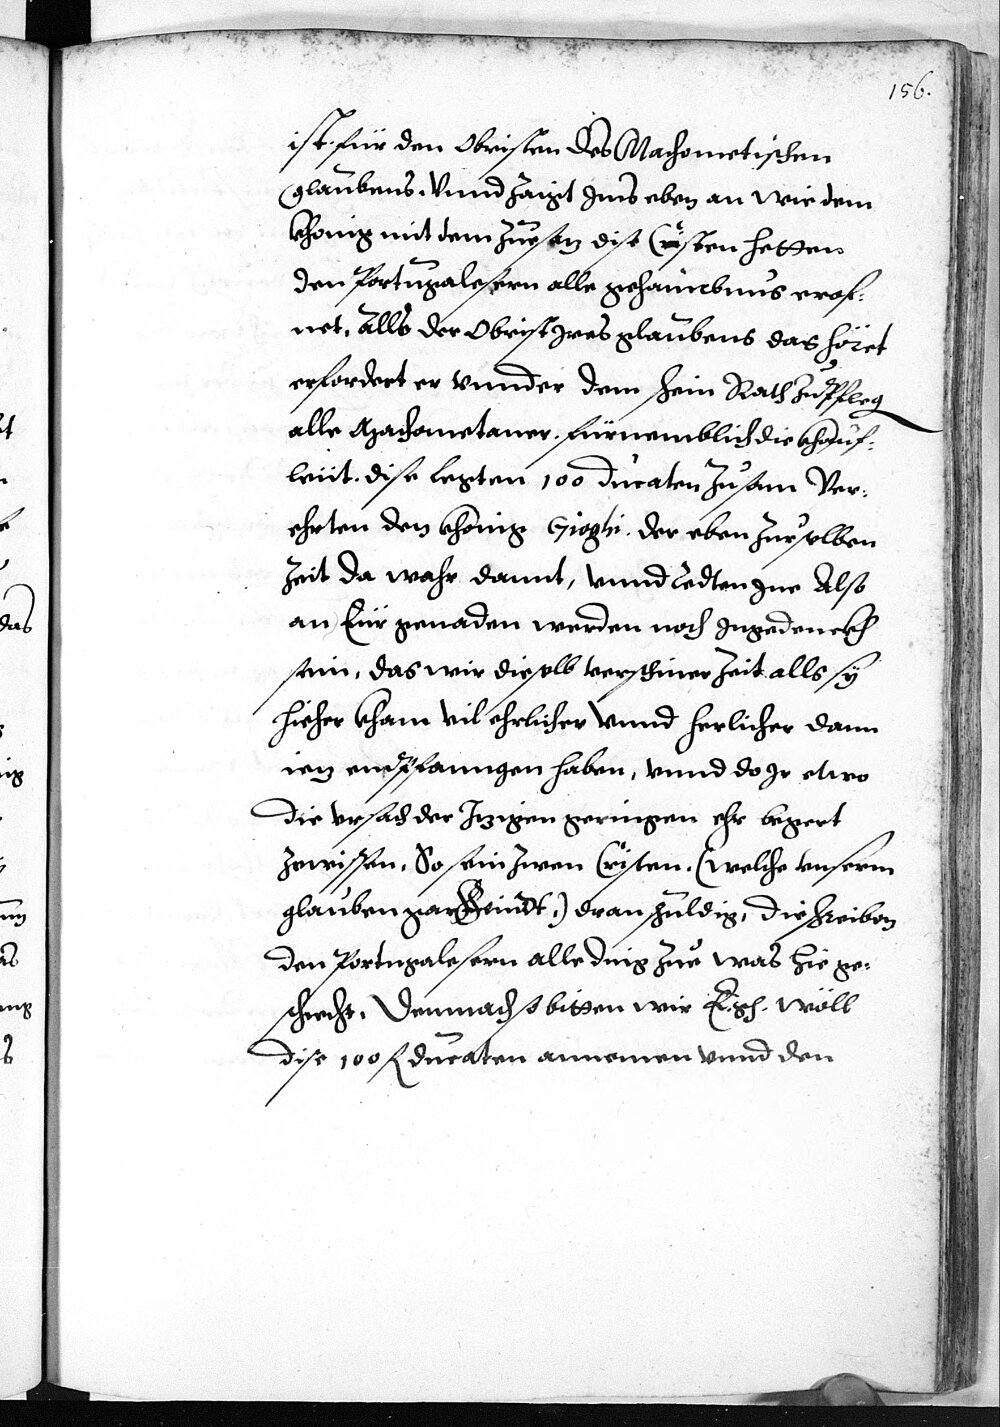 156.
ist für den Obristen des Machometischen
glaubens. Vnnd zaigt Ims eben an wie dem
khonig mit dem zuesaz dise Cristen hetten
den Portugalesern alle gehaimbnus erof-
net, Alls der Obrist Ires glaubens das höret
erfordert er vnnder dem schein Rath zu Pfleg
alle Machometaner. fürnemblich die khauf-
leüt. dise legten 100 ducaten zusam Ver-
ehrten den khönig Gioghi. der eben zur selben
Zeit da wahr damit, vnnd redten Ine Also
an Eür genaden werden noch Ingedenckh
sein, das wir dieselb verschiner Zeit alls sy
hieher kham vil ehrlicher Vnnd herlicher dann
iez empfanngen haben, vnnd do Ir etwo
die vrsach der Izigen geringen ehr begert
zewissen. So sein zwen Cristen. (welche vnserm
glauben gar feindt,) dran schuldig, die schreiben
den Portugalesern alle ding zue was hie ge-
schecht. Demnach so bitten wir E. gh. wöll
dise 100 ducaten annemen vnnd den
das